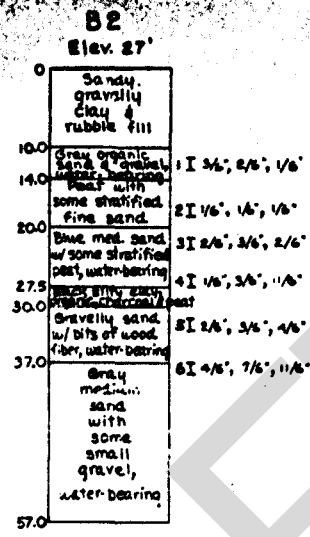 B2
Elev. 27'
0
Sandy,
gravelly
clay &
rubble fill
10.0
Gray organic
sand & gravel,
water-bearing
1 I 3/6", 2/6", 1/6"
14.0
Peat with
some stratified
fine sand
2 I 1/6", 1/6", 1/6"
20.0
Blue med. sand
w/ some stratified
peat, water-bearing
3 I 2/6", 3/6", 2/6"
27.5
silty clay,
charcoal, peat
4 I 1/6", 3/6", 11/6"
30.0
Gravelly sand
w/ bits of wood
fiber, water-bearing
5 I 2/6", 3/6", 4/6"
37.0
6 I 4/6", 7/6", 11/6"
Gray
medium
sand
with
some
small
gravel,
water-bearing
57.0